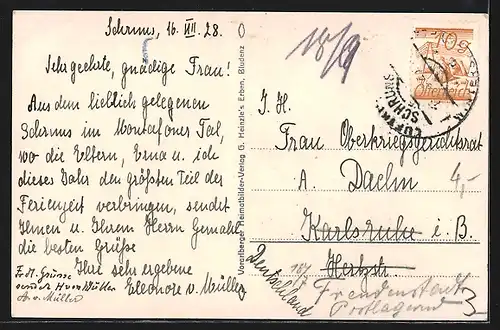 Schruns, 16. VIII. 28.
Sehr geehrte, gnädige Frau!
Aus dem lieblich gelegenen
Schruns im Montafoner Tal,
wo die Eltern, Erna u. ich
dieses Jahr den größten Teil der
Ferienzeit verbringen, sendet
Ihnen u. Ihrem Herrn Gemahl
die besten Grüße
Ihre sehr ergebene
Eleonore v. Müller
Frdl. Grüsse
sendet H. von Müller
A. v. Müller
Vorarlberger Heimatbilder-Verlag G. Heinzle's Erben, Bludenz
18/9
10 g
Österreich
SCHRUNS
I. H.
Frau Oberkriegsgerichtsrat
A. Daehn
4,-
Karlsruhe i. B.
Deutschland
Freudenstadt
Postlagernd
3